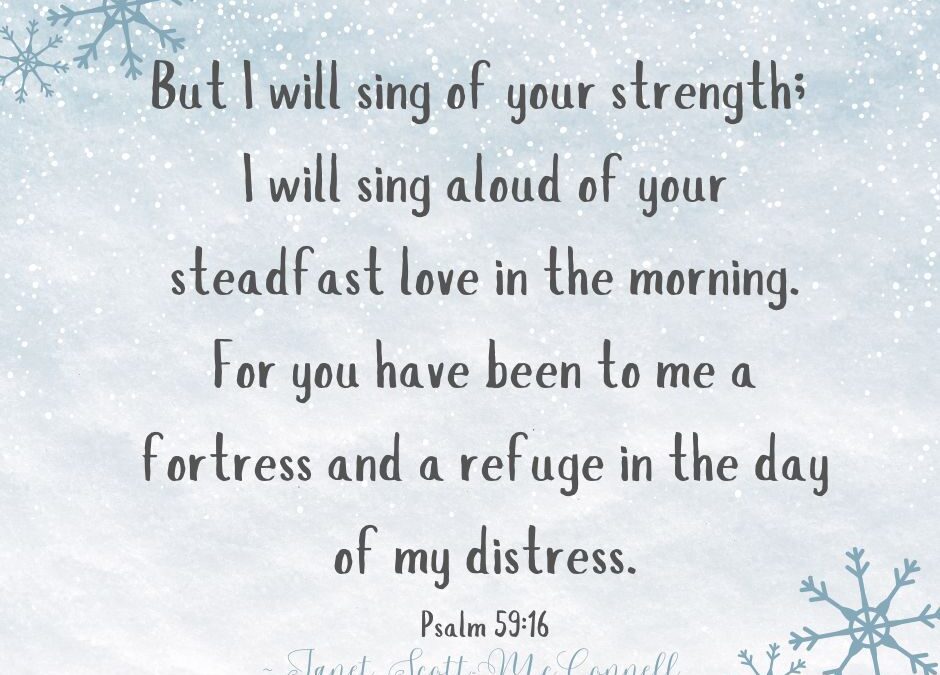 But I will sing of your strength;
I will sing aloud of your
steadfast love in the morning.
For you have been to me a
fortress and a refuge in the day
of my distress.
Psalm 59:16
~ Janet Scott McConnell